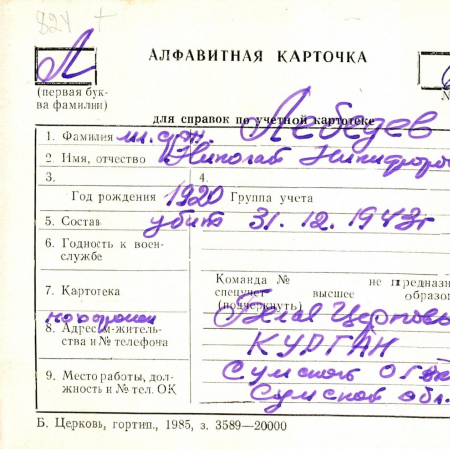 824 +
Л
АЛФАВИТНАЯ КАРТОЧКА
(первая бук-
ва фамилии)
№
для справок по учетной картотеке
1. Фамилия мл. с-ж. Лебедев
2. Имя, отчество Николай Никифоро
3.
4.
Год рождения 1920 Группа учета
5. Состав убит 31.12.1943г
6. Годность к воен-
службе
7. Картотека
Команда № не предназн
спецучет высшее образо
(подчеркнуть)
похоронен Белая Церковь
8. Адрес м-житель-
ства и № телефона
КУРГАН
9. Место работы, дол-
жность и № тел. ОК
Сумской обл.
Б. Церковь, гортип., 1985, з. 3589—20000